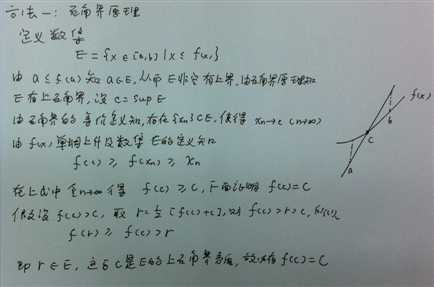 方法一：确界原理
定义数集
E={x∈[a,b] | x≤f(x)}
由 a≤f(a) 知 a∈E，从而 E非空有上界，由确界原理知
E有上确界，设 c=sup E
由上确界的等价定义知，存在{xn}⊂E，使得 xn→c (n→∞)
由 f(x) 单调上升及数集E的定义知
f(c) ≥ f(xn) ≥ xn
在上式中令n→∞得 f(c)≥c，下面证明 f(c)=c
假设 f(c)>c，取 r=½[f(c)+c]，则 f(c)>r>c，所以
f(r) ≥ f(c) > r
即 r∈E，这与c是E的上确界矛盾，故必有 f(c)=c
f(x)
b
c
a